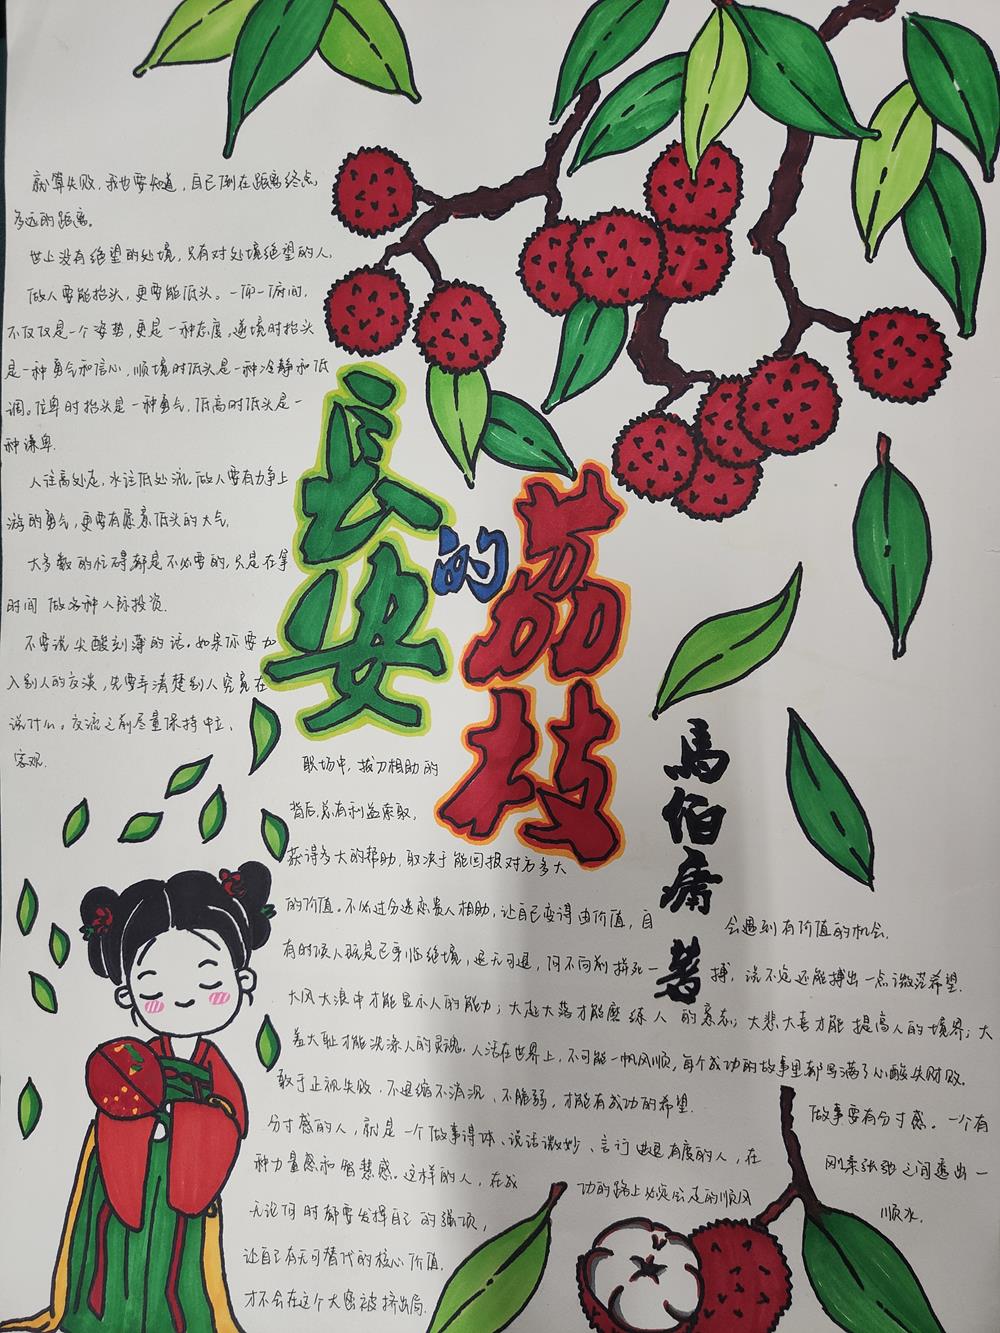 就算失败，我也要知道，自己倒在距离终点
多远的距离。
世上没有绝望的处境，只有对处境绝望的人，
做人要能抬头，更要能低头。一仰一俯间，
不仅仅是一个姿势，更是一种态度。逆境时抬头
是一种勇气和信心，顺境时低头是一种冷静和低
调。位卑时抬头是一种勇气，低高时低头是一
种谦卑．
人往高处走，水往低处流，做人要有力争上
游的勇气，更要有愿意低头的大气．
大多数的忙碌都是不必要的，只是在拿
时间做各种人际投资．
不要说尖酸刻薄的话．如果你要加
入别人的交淡，先要弄清楚别人究竟在
说什么。交流之前尽量保持中立、
客观．
长安
的
荔枝
馬伯庸 著
职场中，拔刀相助的
背后，总有利益索取，
获得多大的帮助，取决于能回报对方多大
的价值．不必过分迷恋贵人相助，让自己变得由价值，自会遇到有价值的机会．
有时候人既是已身临绝境，退无可退，何不向前拼死一搏，说不定还能搏出一点微茫希望．
大风大浪中才能显示人的能力；大起大落才能磨练人的意志；大悲大喜才能提高人的境界；大
羞大耻才能洗涤人的灵魂．人活在世界上，不可能一帆风顺，每个成功的故事里都写满了心酸失财败．
敢于正视失败．不退缩不消沉、不脆弱，才能有成功的希望．
做事要有分寸感．一个有
分寸感的人，就是一个做事得体、说话微妙、言行进退有度的人，在刚柔张弛之间透出一
种力量感和智慧感．这样的人，在成功的路上必定会走的顺风顺水．
无论何时都要发挥自己的强项，
让自己有无可替代的核心价值．
才不会在这个大染被挤出局．